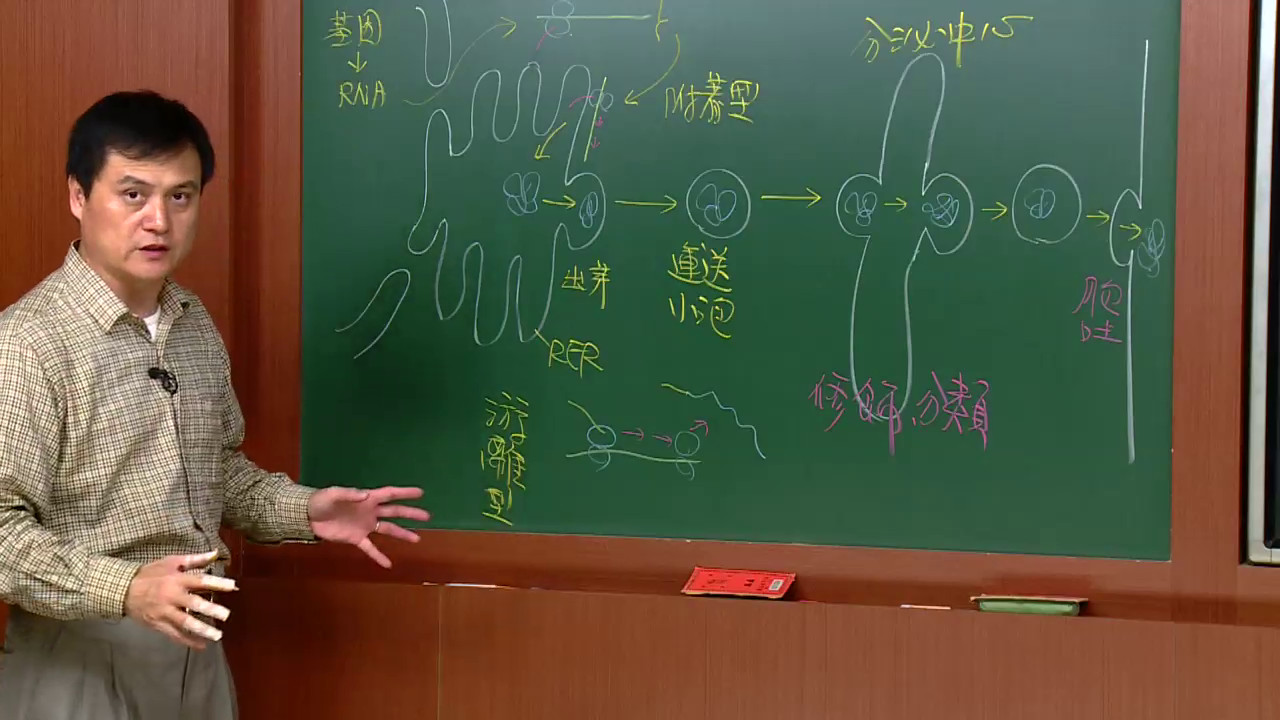 基因
RNA
分泌中心
附著型
出芽
運送
小泡
RER
胞
吐
修飾、分類
游
離
型